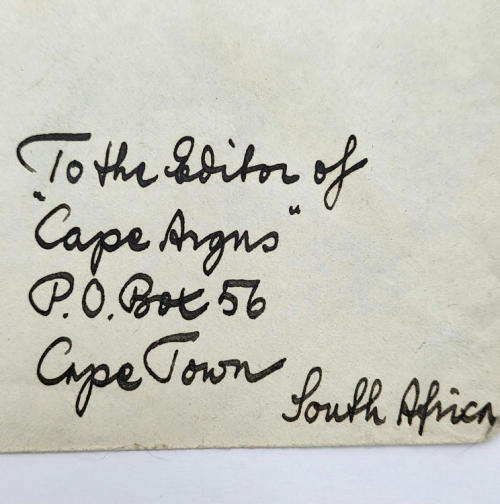 To the Editor of
"Cape Argus"
P.O. Box 56
Cape Town
South Africa